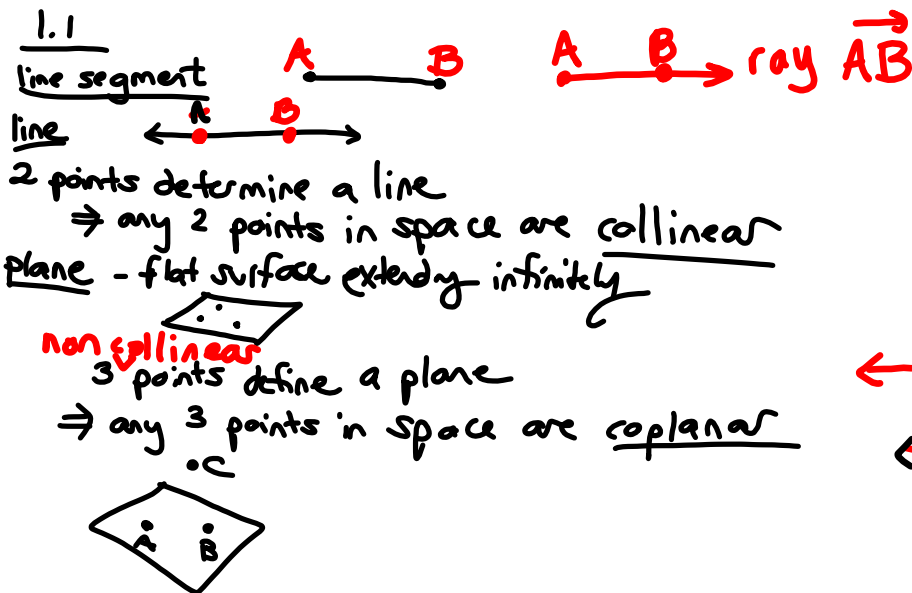 1.1
line segment A B A B ray AB
line A B
2 points determine a line
⇒ any 2 points in space are collinear
plane - flat surface extendy infinitely
non collinear
3 points define a plane
⇒ any 3 points in space are coplanar
C
A B